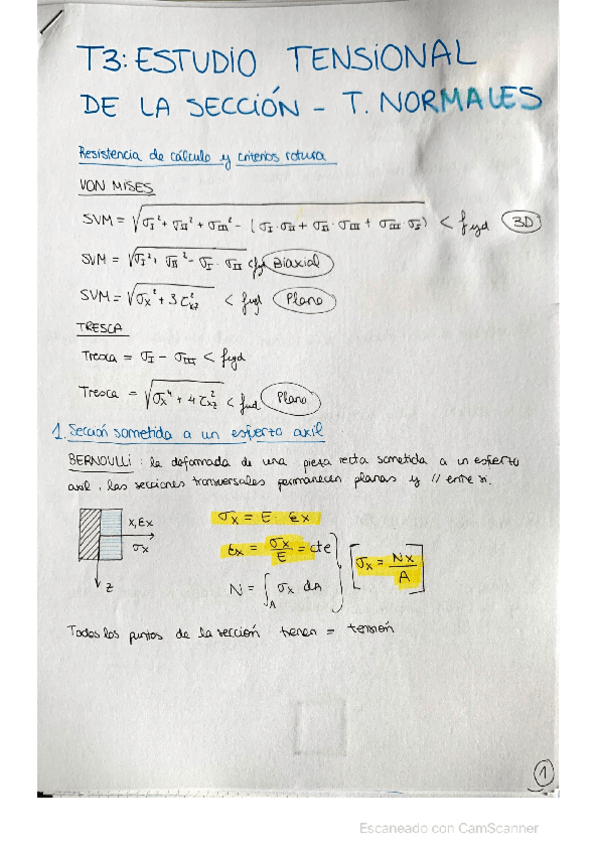 T3: ESTUDIO TENSIONAL
DE LA SECCIÓN - T. NORMALES
Resistencia de cálculo y criterios rotura
VON MISES
SVM = √(σI² + σII² + σIII² - (σI·σII + σII·σIII + σIII·σI)) < fyd 3D
SVM = √(σI² + σII² - σI·σII) < fyd Biaxial
SVM = √(σx² + 3τxz²) < fyd Plano
TRESCA
Tresca = σI - σIII < fyd
Tresca = √(σx⁴ + 4τxz²) < fyd Plano
1. Sección sometida a un esfuerzo axil
BERNOULLI: la deformada de una pieza recta sometida a un esfuerzo
axil, las secciones transversales permanecen planas y // entre si.
σx = E · εx
x, εx
σx
z
εx = σx/E = cte
σx = Nx/A
N = ∫A σx dA
Todos los puntos de la sección tienen = tensión
1
Escaneado con CamScanner